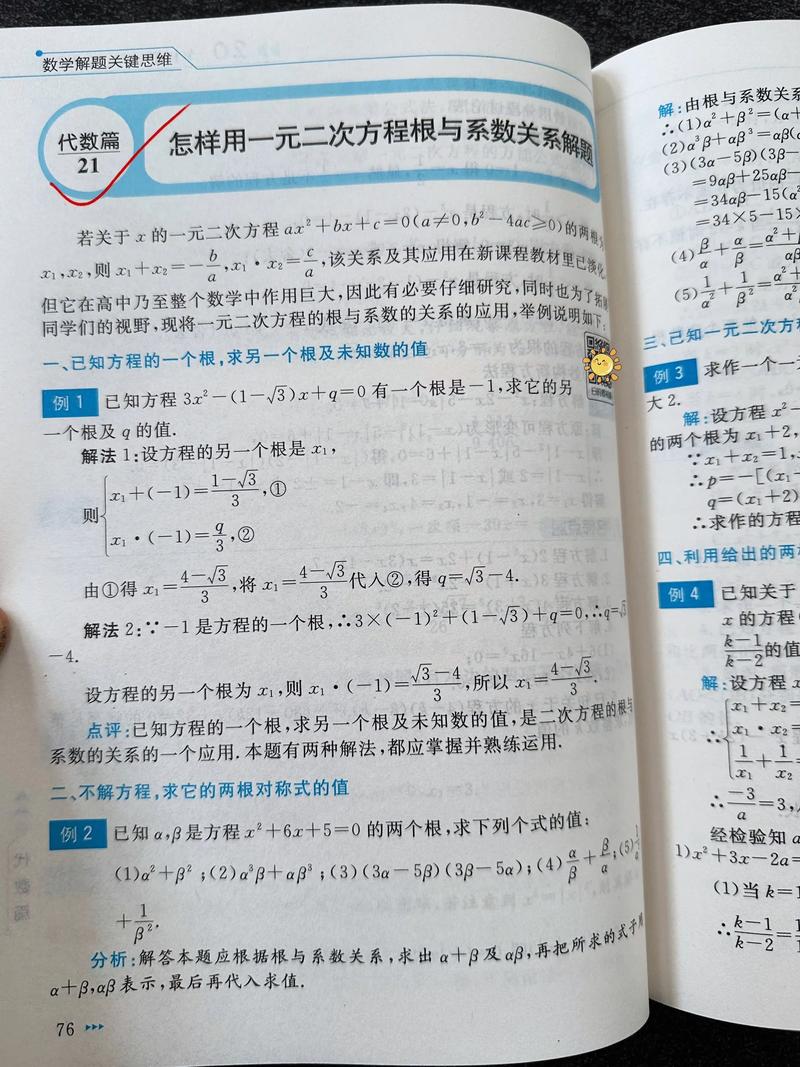 数学解题关键思维
代数篇
21
怎样用一元二次方程根与系数关系解题
若关于 x 的一元二次方程 ax²+bx+c=0(a≠0,b²-4ac≥0)的两根
x₁,x₂,则 x₁+x₂=-b/a,x₁·x₂=c/a,该关系及其应用在新课程教材里已淡化,
但它在高中乃至整个数学中作用巨大,因此有必要仔细研究,同时也为了拓
同学们的视野,现将一元二次方程的根与系数的关系的应用,举例说明如下:
一、已知方程的一个根,求另一个根及未知数的值
例 1 已知方程 3x²-(1-√3)x+q=0 有一个根是-1,求它的另
一个根及 q 的值.
解法 1:设方程的另一个根是 x₁,
则{x₁+(-1)=(1-√3)/3,①
x₁·(-1)=q/3,②
由①得 x₁=(4-√3)/3,将 x₁=(4-√3)/3代入②,得 q=√3-4.
解法 2:∵-1是方程的一个根,∴3×(-1)²+(1-√3)+q=0,∴q=√3
-4.
设方程的另一个根为 x₁,则 x₁·(-1)=(√3-4)/3,所以 x₁=(4-√3)/3.
点评:已知方程的一个根,求另一个根及未知数的值,是二次方程的根与
系数的关系的一个应用.本题有两种解法,都应掌握并熟练运用.
二、不解方程,求它的两根对称式的值
例 2 已知 α,β是方程 x²+6x+5=0 的两个根,求下列个式的值:
(1)α²+β²;(2)α³β+αβ³;(3)(3α-5β)(3β-5α);(4)α/β+β/α;(5)
+1/β².
分析:解答本题应根据根与系数关系,求出 α+β 及 αβ,再把所求的式子用
α+β,αβ表示,最后再代入求值.
76
代数篇
解:由根与系数关系
∴(1)α²+β²=(α+
(2)α³β+αβ³=αβ(
(3)(3α-5β)(3β-
=9αβ+25αβ-
=34αβ-15(α
=34×5-15×
(4)β/α+α/β=
(5)1/α²+1/β²=
三、已知一元二次方
例 3 求作一个一
大 2.
解:设方程 x²-
的两个根为 x₁+2,
∵x₁+x₂=1,
∴p=-[(x₁
q=(x₁+2)
∴求作的方程
四、利用给出的两
例 4 已知关于
x 的方程(
(k-1)/(k-2)的值
解:设方程 x
∴{x₁+x₂=
x₁·x₂=
1/x₁+1/x₂=
∴-3/a=3,
经检验知 a
1)x²+3x-2a=
(1)当 k=1
∴(k-1)/(k-2)=